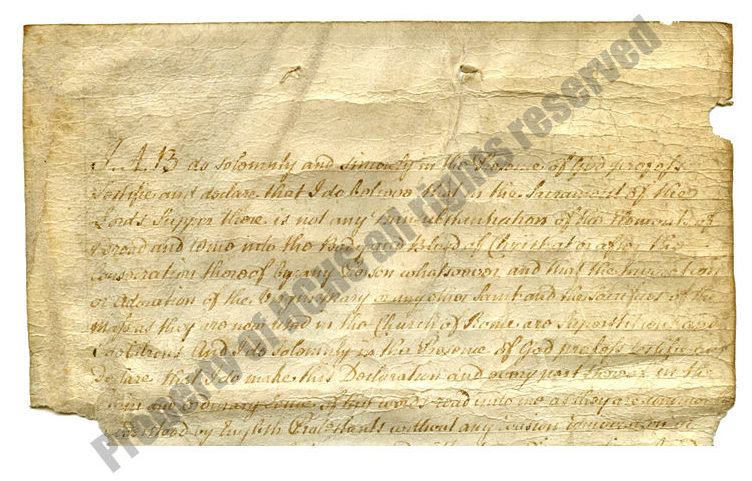 I. A. B do solomnly and sincerely in the Presence of God profess
testifie and declare that I do beleeve that in the Sacrament of the
Lords Supper there is not any Transubstantiation of the Elements of
Bread and Wine into the Body and Blood of Christ at or after the
consecration thereof by any Person whatsoever and that the Invocation
or Adoration of the Virgin Mary or any other Saint and the Sacrifice of the
Mass as they are now used in the Church of Rome are superstitious and
Idolatrous And I do solomnly in the Presence of God profess testifie and
Declare that I do make this Declaration and every part thereof in the
plain and ordinary sence of the words read unto me as they are commonly
understood by English Protestants without any evasion
Property of RCHS all rights reserved